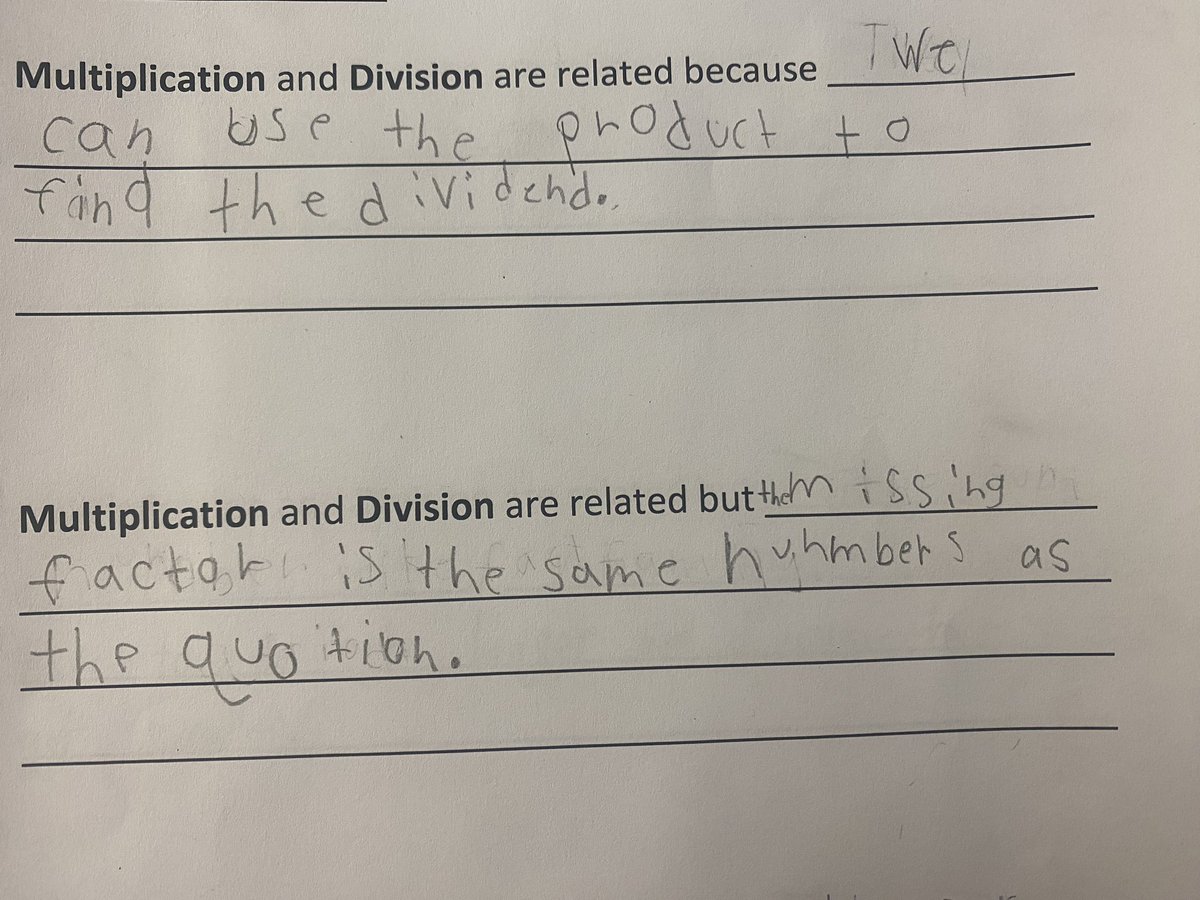 Multiplication and Division are related because Twe
can use the product to
find the dividend.
Multiplication and Division are related but the missing
fractor is the same nuhmbers as
the quotion.